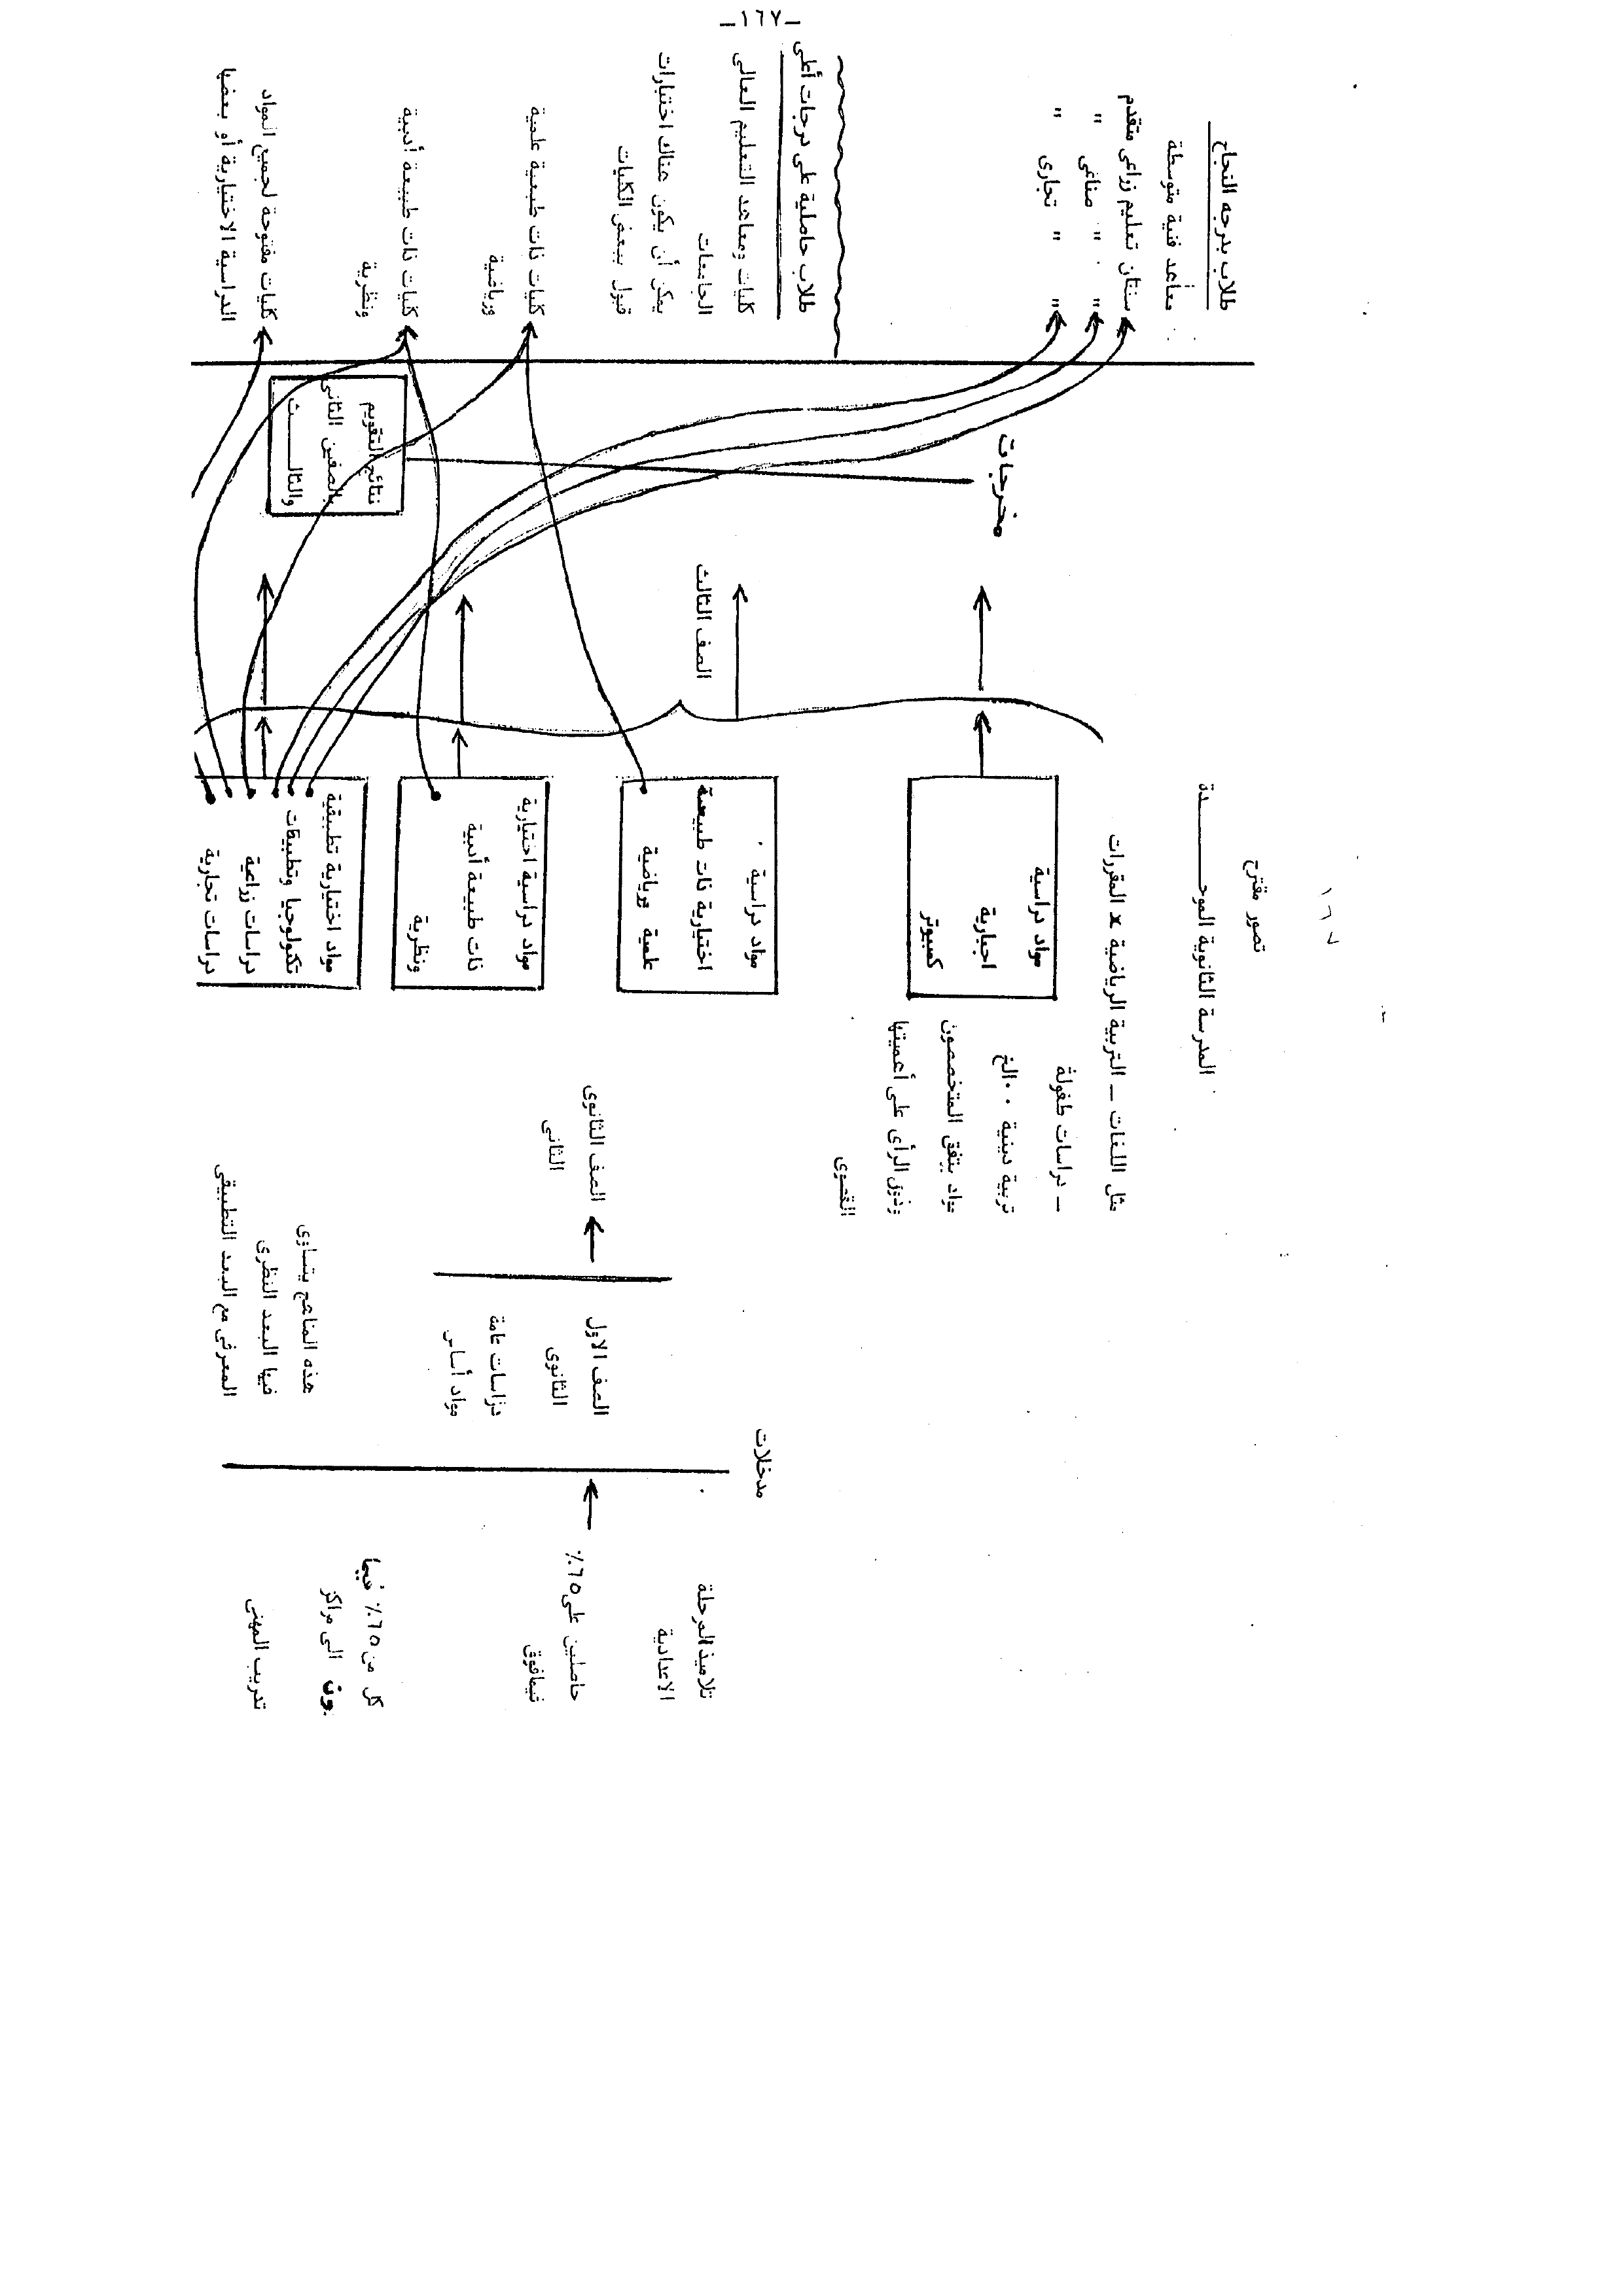 -١٦٧-
١٦٧
تصور مقترح
المدرسة الثانوية الموحـــــدة
مدخلات
تلاميذ المرحلة
الاعدادية
حاصلين على ٦٥٪
فيمافوق
٦٥٪ فيما
الى مراكز
تدريب المهنى
الصف الاول
الثانوى
دراسات عامة
مواد أساس
الصف الثانوى
الثانى
هذه المناهج يتساوى
فيها البعد النظرى
المعرفى مع البعد التطبيقى
مثل اللغات ــ التربية الرياضية x المقررات
ــ دراسات طفولة
تربية دينية ٠٠ الخ
مواد يتفق المتخصصون
وذوى الرأى على أهميتها
القصوى
مواد دراسية
اجبارية
كمبيوتر
مواد دراسية
اختيارية ذات طبيعة
علمية ورياضية
مواد دراسية اختيارية
ذات طبيعة أدبية
ونظرية
مواد اختيارية تطبيقية
تكنولوجيا وتطبيقات
دراسات زراعية
دراسات تجارية
الصف الثالث
مخرجات
نتائج التقويم
بالصفين الثانى
والثالـــــث
طلاب بدرجه النجاح
معاهد فنية متوسطة
سنتان تعليم زراعى متقدم
" " صناعى "
" " تجارى "
طلاب حاملية على درجات أعلى
كليات ومعاهد التعليم العالى
الجامعات
يمكن أن يكون هناك اختبارات
قبول ببعض الكليات
كليات ذات طبعية علمية
ورياضية
كليات ذات طبيعة أدبية
ونظرية
كليات مفتوحة لجميع المواد
الدراسية الاختيارية أو بعضها